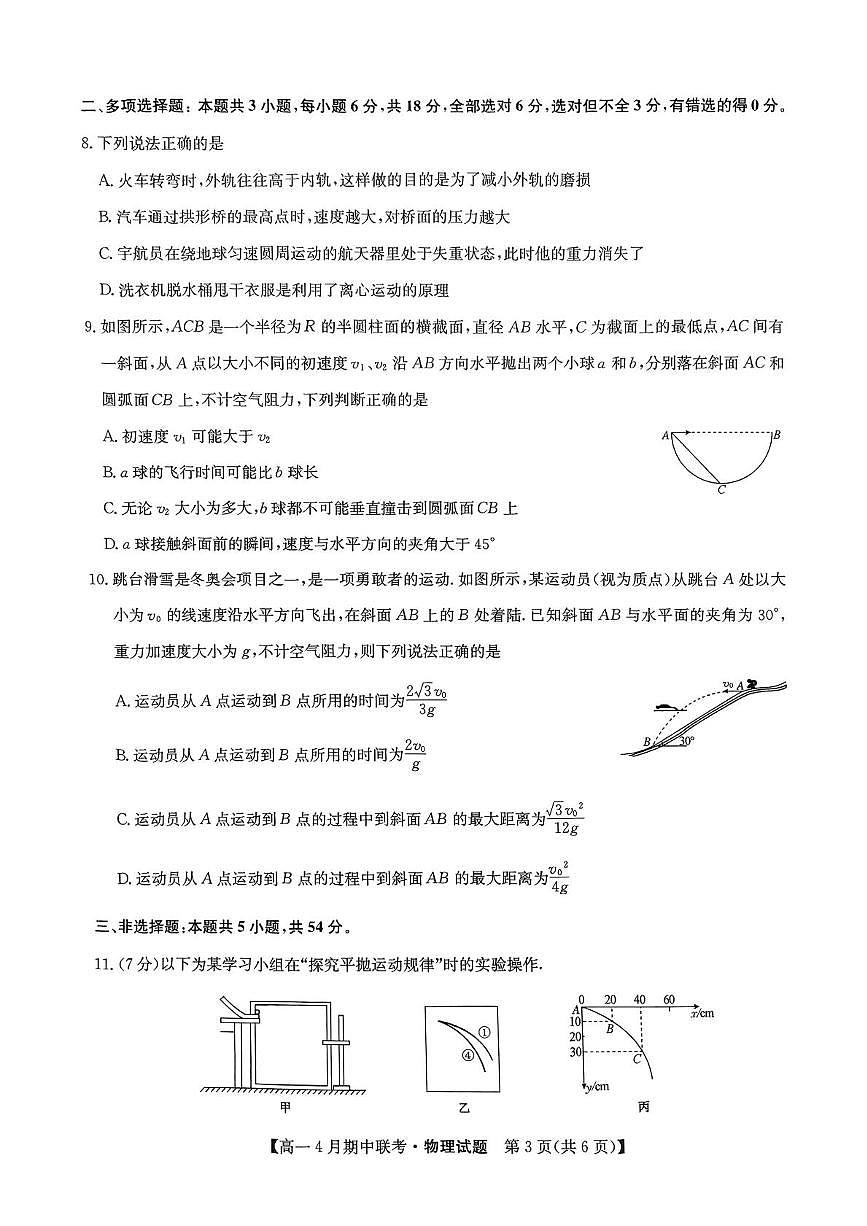 二、多项选择题：本题共3小题，每小题6分，共18分，全部选对6分，选对但不全3分，有错选的得0分。
8. 下列说法正确的是
A. 火车转弯时，外轨往往高于内轨，这样做的目的是为了减小外轨的磨损
B. 汽车通过拱形桥的最高点时，速度越大，对桥面的压力越大
C. 宇航员在绕地球匀速圆周运动的航天器里处于失重状态，此时他的重力消失了
D. 洗衣机脱水桶甩干衣服是利用了离心运动的原理
9. 如图所示，ACB是一个半径为R的半圆柱面的横截面，直径AB水平，C为截面上的最低点，AC间有
一斜面，从A点以大小不同的初速度v₁、v₂沿AB方向水平抛出两个小球a和b，分别落在斜面AC和
圆弧面CB上，不计空气阻力，下列判断正确的是
A. 初速度v₁可能大于v₂
B. a球的飞行时间可能比b球长
C. 无论v₂大小为多大，b球都不可能垂直撞击到圆弧面CB上
D. a球接触斜面前的瞬间，速度与水平方向的夹角大于45°
A
B
C
10. 跳台滑雪是冬奥会项目之一，是一项勇敢者的运动. 如图所示，某运动员（视为质点）从跳台A处以大
小为v₀的线速度沿水平方向飞出，在斜面AB上的B处着陆. 已知斜面AB与水平面的夹角为30°，
重力加速度大小为g，不计空气阻力，则下列说法正确的是
A. 运动员从A点运动到B点所用的时间为2√3v₀/3g
B. 运动员从A点运动到B点所用的时间为2v₀/g
C. 运动员从A点运动到B点的过程中到斜面AB的最大距离为√3v₀²/12g
D. 运动员从A点运动到B点的过程中到斜面AB的最大距离为v₀²/4g
v₀ A
B 30°
三、非选择题：本题共5小题，共54分。
11.（7分）以下为某学习小组在“探究平抛运动规律”时的实验操作.
①
④
0 20 40 60
x/cm
A
10
B
20
30
C
y/cm
甲 乙 丙
【高一4月期中联考·物理试题 第3页（共6页）】